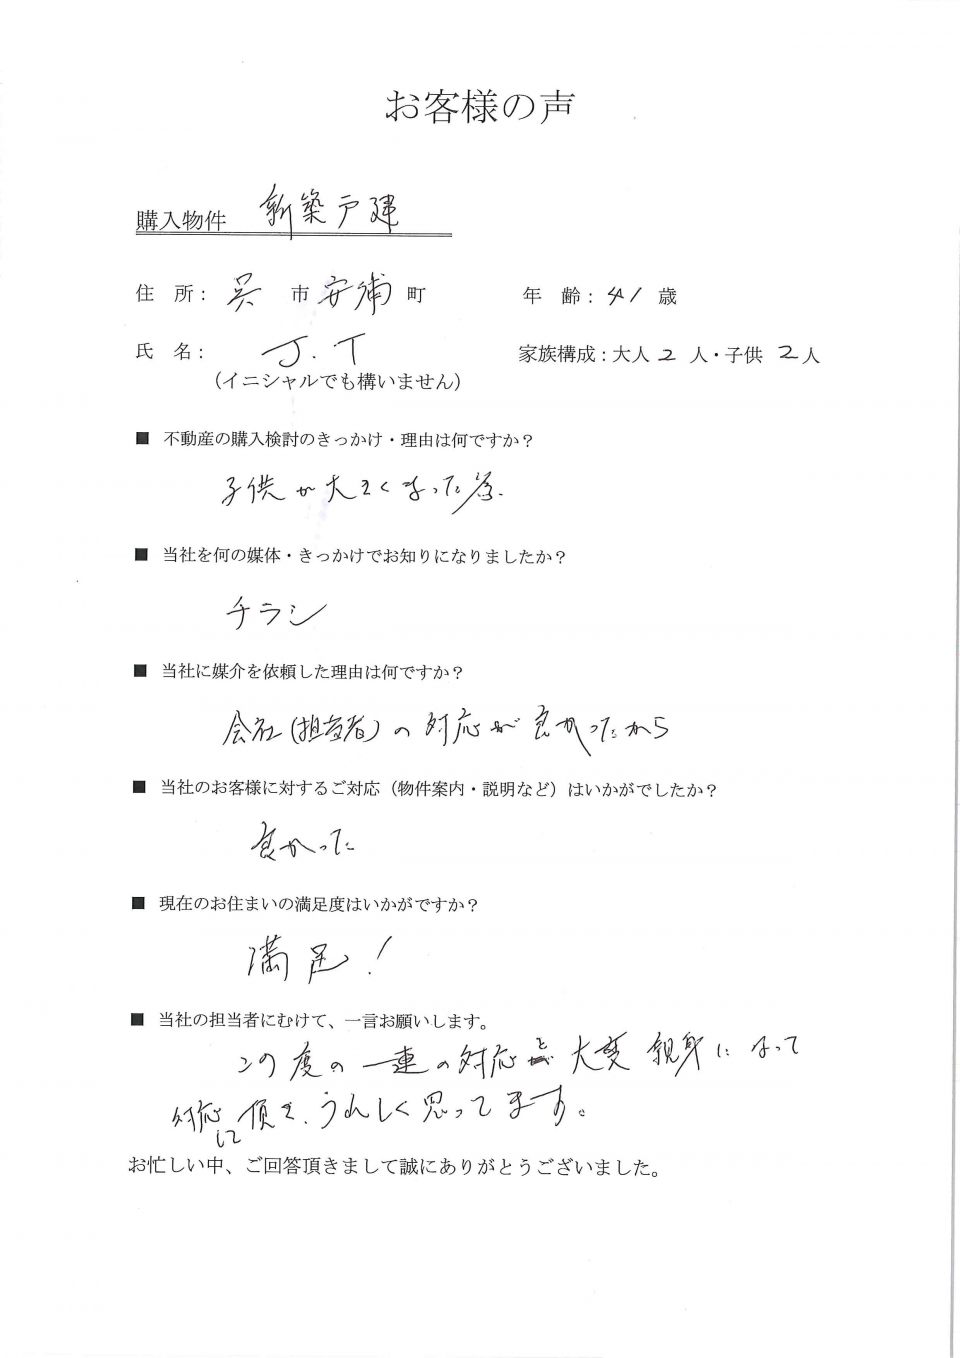 お客様の声
購入物件 新築戸建
住 所: 呉 市 安浦 町 年 齢: 41 歳
氏 名: J.T 家族構成:大人 2 人・子供 2 人
(イニシャルでも構いません)
■ 不動産の購入検討のきっかけ・理由は何ですか?
子供が大きくなった為.
■ 当社を何の媒体・きっかけでお知りになりましたか?
チラシ
■ 当社に媒介を依頼した理由は何ですか?
会社(担当者)の対応が良かったから
■ 当社のお客様に対するご対応(物件案内・説明など)はいかがでしたか?
良かった
■ 現在のお住まいの満足度はいかがですか?
満足!
■ 当社の担当者にむけて、一言お願いします。
この度の一連の対応と大変親身になって
対応して頂き、うれしく思ってます。
お忙しい中、ご回答頂きまして誠にありがとうございました。